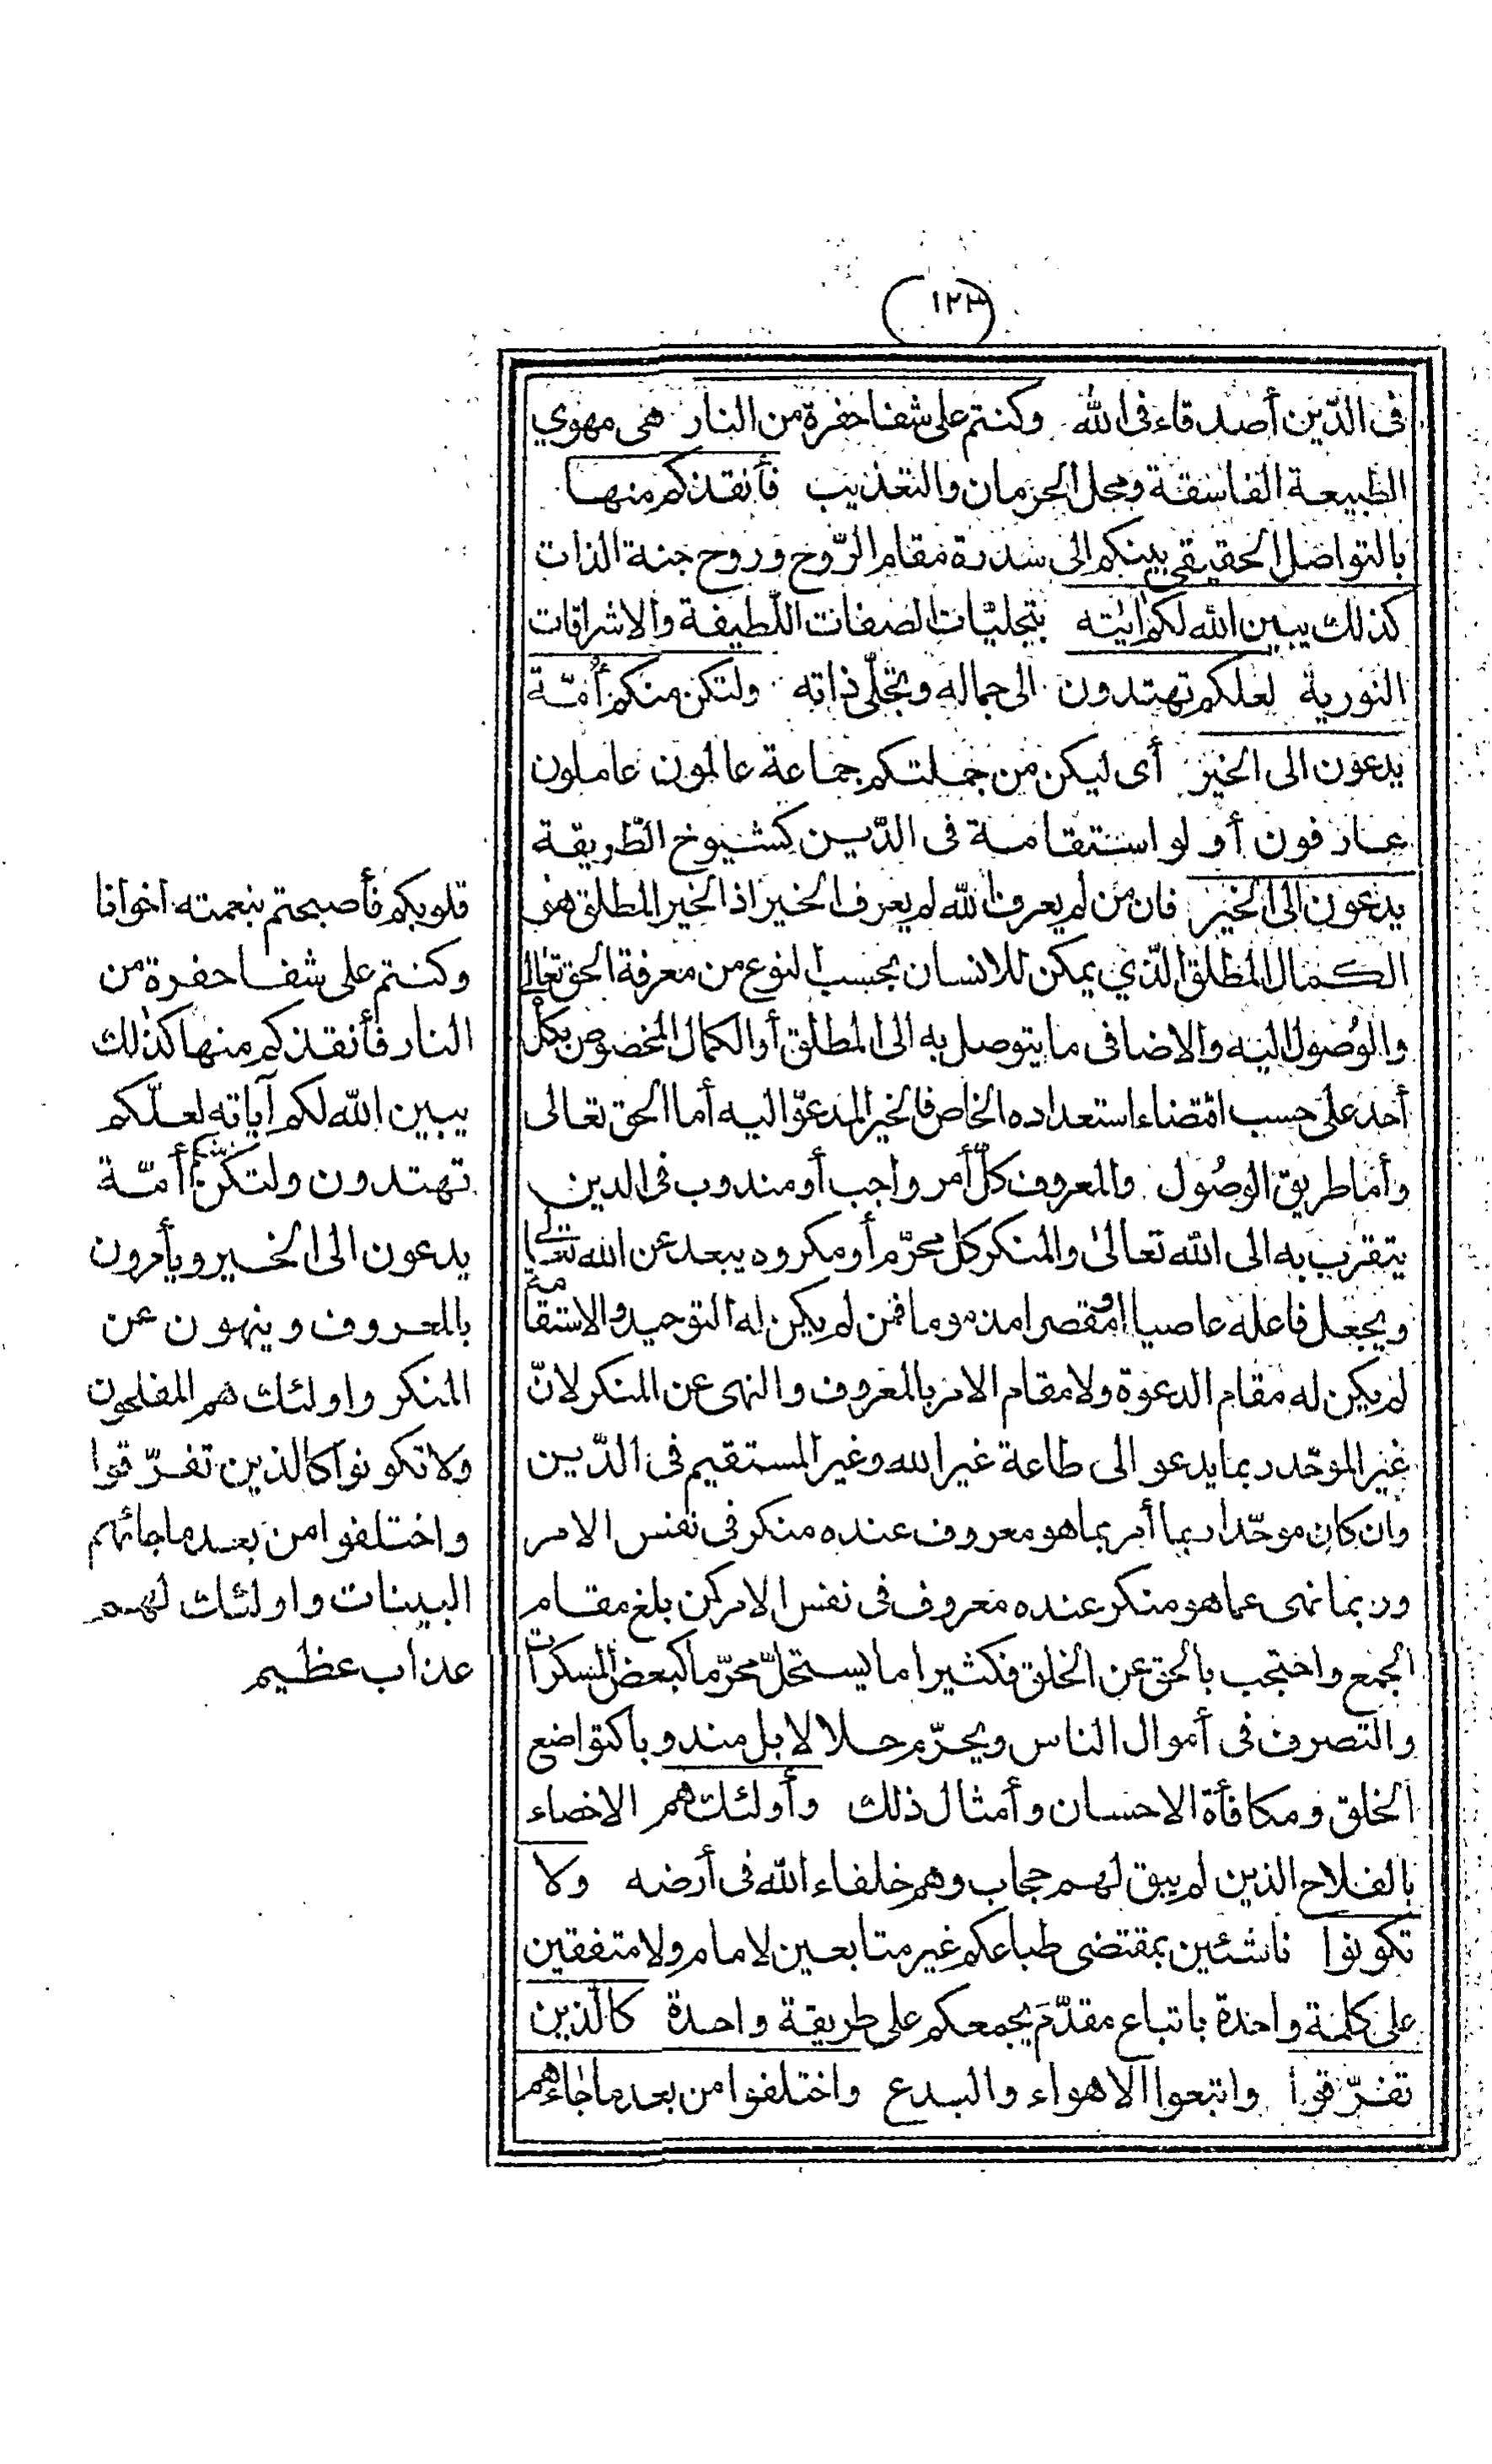 (١٢٣)
فى الدّين أصدقاء فى الله وكنتم على شفا حفرة من النار هى مهوي
الطبيعة الفاسقة ومحل الحرمان والتعذيب فأنقذكم منها
بالتواصل الحقيقى بينكم الى سدرة مقام الرّوح وروح جنة الذات
كذلك يبين الله لكم اٰيٰته بتجليّات الصفات اللّطيفة والاشراقات
النورية لعلكم تهتدون الى جماله وتجلّى ذاته ولتكن منكم أُمّة
يدعون الى الخير أى ليكن من جملتكم جماعة عالمون عاملون
عارفون أولو استقامة فى الدّين كشيوخ الطّريقة
يدعون الى الخير فان من لم يعرف الله لم يعرف الخير اذ الخير المطلق هو
الكمال المطلق الّذي يمكن للانسان بحسب النوع من معرفة الحق تعالى
والوُصول اليه والاضافى ما يتوصل به الى المطلق أو الكمال المخصوص بكل
أحد على حسب اقتضاء استعداده الخاص فالخير المدعوّ اليه أما الحق تعالى
وأما طريق الوصُول والمعروف كلّ أمر واجب أو مندوب فى الدين
يتقرب به الى الله تعالىٰ والمنكر كل محرّم أو مكروه يبعد عن الله تعالى
ويجعل فاعله عاصيا او مقصرا مذموما فمن لم يكن له التوحيد والاستقامة
لم يكن له مقام الدعوة ولا مقام الامر بالمعروف والنهى عن المنكر لانّ
غير الموحّد ربما يدعو الى طاعة غير الله وغير المستقيم فى الدّين
وان كان موحّدا ربما أمر بما هو معروف عنده منكر فى نفس الامر
وربما نهى عما هو منكر عنده معروف فى نفس الامر كمن بلغ مقام
الجمع واحتجب بالحق عن الخلق فكثيرا ما يستحلّ محرّما كبعض المسكرات
والتصرف فى أموال الناس ويحرّم حلالا بل مندوبا كتواضع
الخلق ومكافأة الاحسان وأمثال ذلك وأولئك هم الاخصاء
بالفلاح الذين لم يبق لهم حجاب وهم خلفاء الله فى أرضه ولا
تكونوا ناشئين بمقتضى طباعكم غير متابعين لامام ولا متفقين
على كلمة واحدة باتباع مقدّم يجمعكم على طريقة واحدة كالّذين
تفرّقوا واتبعوا الاهواء والبدع واختلفوا من بعد ما جاءهم
قلوبكم فأصبحتم بنعمته اخوانا
وكنتم على شفا حفرة من
النار فأنقذكم منها كذٰلك
يبين الله لكم آياته لعلّكم
تهتدون ولتكن منكم أمّة
يدعون الى الخير ويأمرون
بالمعروف وينهون عن
المنكر واولئك هم المفلحون
ولا تكونوا كالذين تفرّقوا
واختلفوا من بعد ما جائهم
البينات واولئك لهم
عذاب عظيم